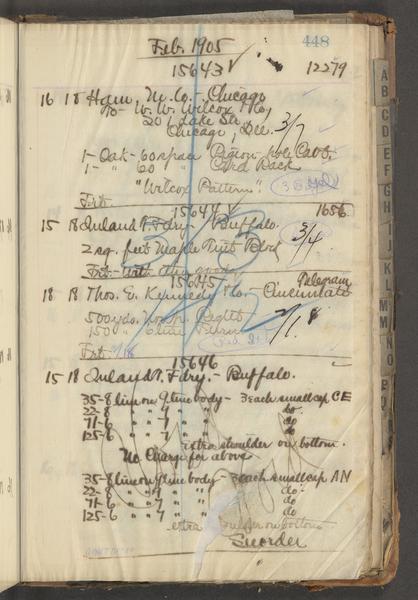 Feb. 1905
448
15643 ✓
12279
16 18 Ham. M. Co. - Chicago
To - W. W. Wilcox Co,
201 Lake St.,
Chicago, Ills. 3/7
1 - Oak - 60 space Pigeon hole Cabt.
1 - " 60 " Card Rack
"Wilcox Pattern".
Frt.
15644 ✓
1656
15 18 Inland T. Fdry - Buffalo. 3/4
2 sq. feet Maple
Frt - With other goods
15645
Telegram
18 18 Thos. E. Kennedy & Co. - Cincinnati
500 yds.
150
Frt. 2/18
15646
15 18 Inland T. Fdry. - Buffalo.
35 - 8 line on 9 line body - 3 each small cap CE
22 - 8 " " 9 " " do.
71 - 6 " " 7 " " do
125 - 6 " " 7 " " do
extra shoulder on bottom.
No Charge for above
35 - 8 line on 9 line body - 3 each small cap AN
22 - 8 " " 9 " " do.
71 - 6 " " 7 " " do.
125 - 6 " " 7 " " do.
extra shoulder on bottom
A
B
C
D
E
F
G
H
I
J
K
L
M
N
O
P